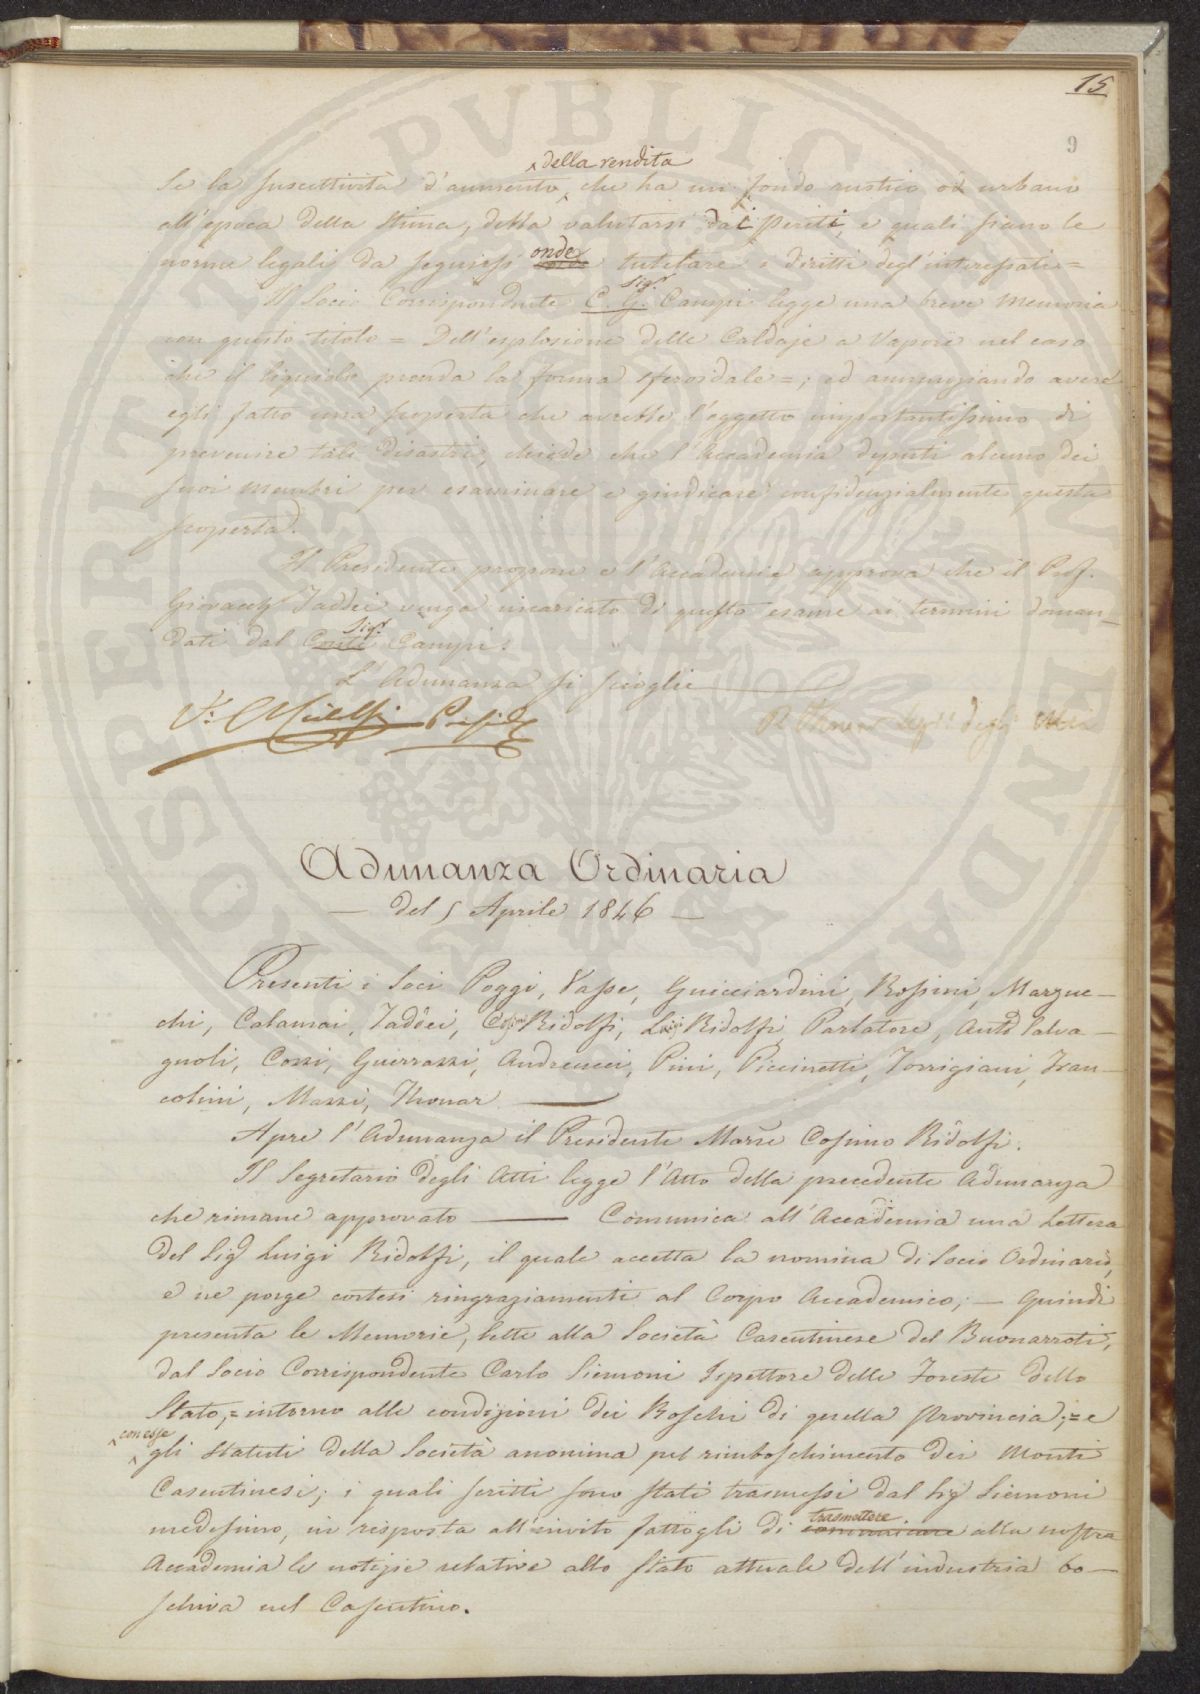 15
9
della rendita
Se la suscettività d'aumento, che ha un fondo rustico od urbano
all'epoca della stima, debba valutarsi dai periti, e quali siano le
norme legali da seguirsi onde tutelare i diritti degl'interessati =
Sigr
Il Socio Corrispondente C. G. Campi legge una breve Memoria
con questo titolo = Dell'esplosione delle Caldaje a Vapore nel caso
che il liquido prenda la forma sferoidale =; ed annunziando avere
egli fatto una scoperta che avrebbe l'oggetto importantissimo di
prevenire tali disastri, chiede che l'Accademia deputi alcuno dei
suoi membri per esaminare e giudicare confidenzialmente questa
scoperta.
Il Presidente propone e l'Accademia approva che il Prof.
Taddei venga incaricato di questo esame ai termini doman-
Sigr
dati dal Conte Campi.
L'Adunanza si scioglie
V:
degli Atti
Adunanza Ordinaria
— del 5 Aprile 1846 —
Presenti i Soci Poggi, Vasse, Guicciardini, Rossini, Marzuc-
chi, Calamai, Taddei, Cosimo Ridolfi, Luigi Ridolfi, Parlatore, Anto Salva-
gnoli, Cozzi, Guerrazzi, Andreucci, Pini, Piccinetti, Torrigiani, Fran-
colini, Mazzi, Thouar
Apre l'Adunanza il Presidente Marse Cosimo Ridolfi.
Il Segretario degli Atti legge l'Atto della precedente Adunanza
che rimane approvato — Comunica all'Accademia una Lettera
del Sigr Luigi Ridolfi, il quale accetta la nomina di Socio Ordinario,
e ne porge cortesi ringraziamenti al Corpo Accademico; — Quindi
presenta le Memorie, lette alla Società Casentinese del Buonarroti,
dal Socio Corrispondente Carlo Siemoni Ispettore delle Foreste dello
Stato, = intorno alle condizioni dei Boschi di quella Provincia; = e
con esse
gli statuti della Società anonima pel rimboschimento dei Monti
Casentinesi; i quali scritti sono stati trasmessi dal Sigr Siemoni
trasmettere
medesimo, in risposta all'invito fattogli di comunicare alla nostra
Accademia le notizie relative allo stato attuale dell'industria bo-
schiva nel Casentino.